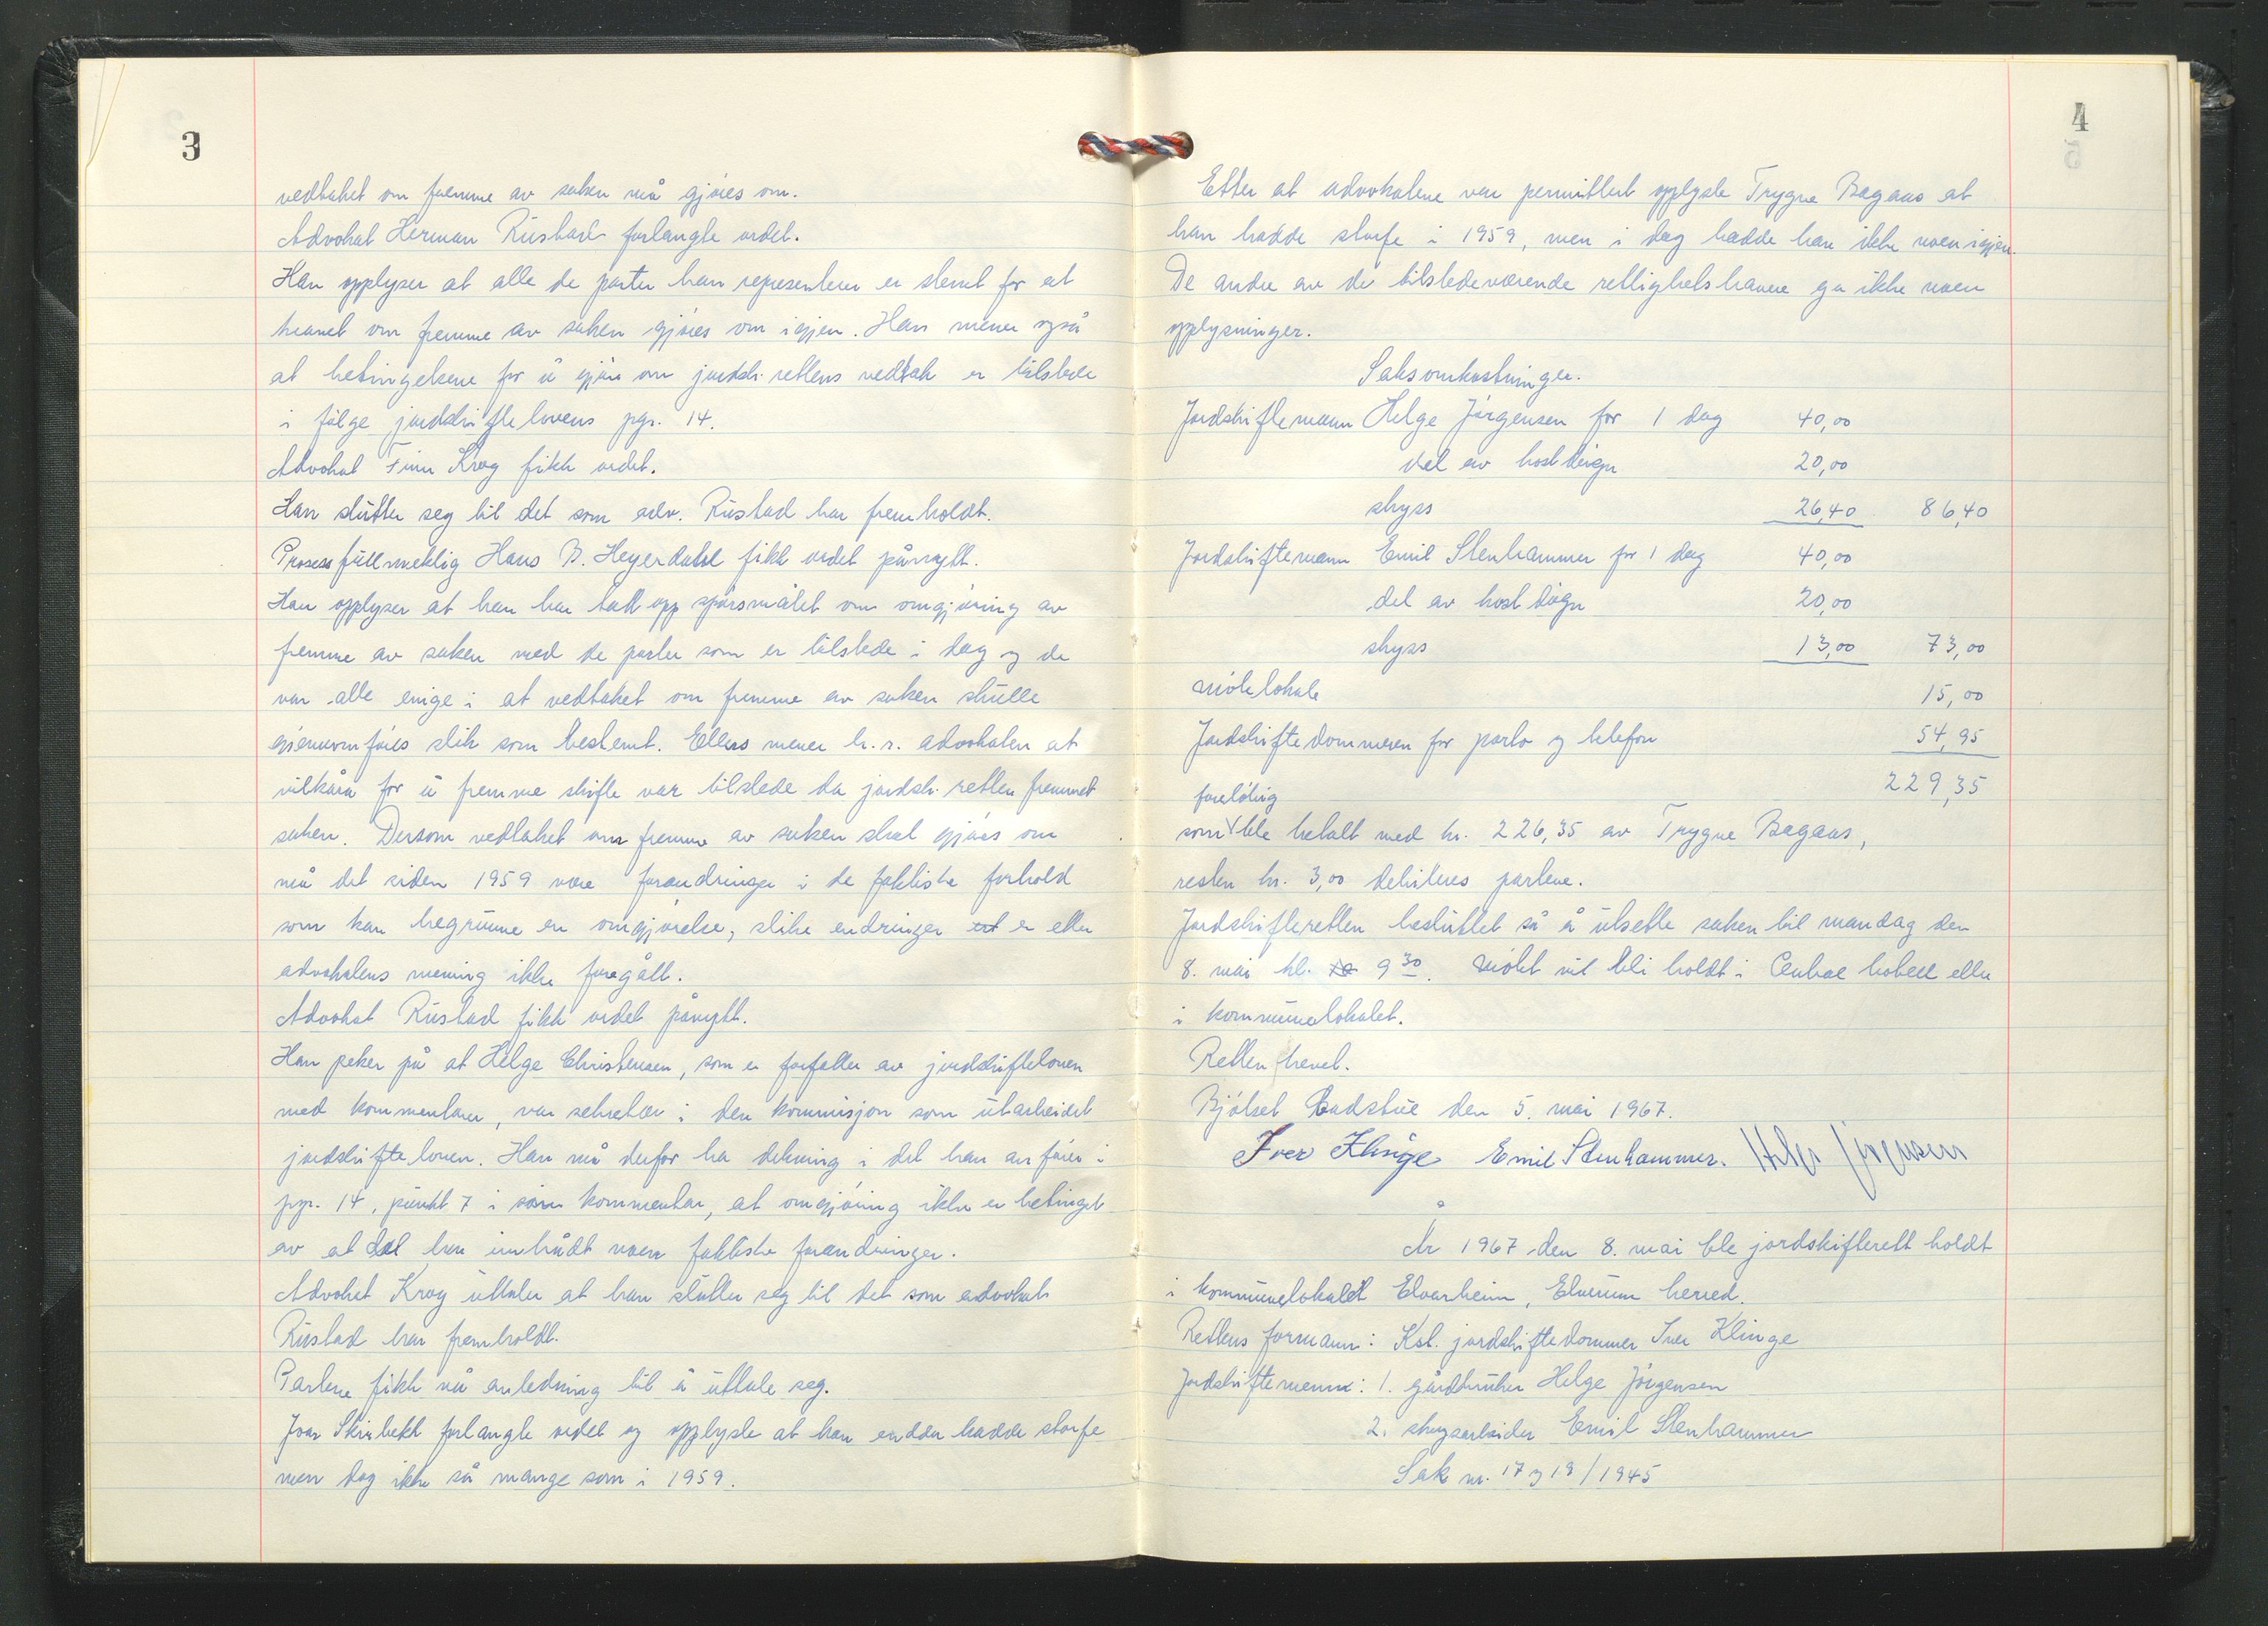 3
vedtaket om fremme av saken må gjøres om.
Advokat Herman Rustad forlangte ordet.
Han opplyser at alle de parter han representerer er stemt for at
kravet om fremme av saken gjøres om igjen. Han mener også
at betingelsene for å gjøre om jordsk. rettens vedtak er tilstede
i følge jordskiftelovens pgr. 14.
Advokat Finn Krog fikk ordet.
Han slutter seg til det som adv. Rustad har fremholdt.
Prosessfullmektig Hans B. Heyerdahl fikk ordet pånytt.
Han opplyser at han har tatt opp spørsmålet om omgjøring av
fremme av saken med de parter som er tilstede i dag og de
var alle enige i at vedtaket om fremme av saken skulle
gjennomføres slik som bestemt. Ellers mener h.r. advokaten at
vilkåra for å fremme skifte var tilstede da jordsk. retten fremmet
saken. Dersom vedtaket om fremme av saken skal gjøres om
må det siden 1959 være forandringer i de faktiske forhold
som kan begrunne en omgjørelse, slike endringer er etter
advokatens mening ikke foregått.
Advokat Rustad fikk ordet pånytt.
Han peker på at Helge Christensen, som er forfatter av jordskifteloven
med kommentarer, var sekretær i den kommisjon som utarbeidet
jordskifteloven. Han må derfor ha dekning i det han anfører i
pgr. 14, punkt 7 i sin kommentar, at omgjøring ikke er betinget
av at det har inntrådt noen faktiske forandringer.
Advokat Krog uttaler at han slutter seg til det som advokat
Rustad har fremholdt.
Partene fikk nå anledning til å uttale seg.
Ivar Skirbekk forlangte ordet og opplyste at han endda hadde storfe
men dog ikke så mange som i 1959.
4
Etter at advokatene var permittert opplyste Trygve Bagaas at
han hadde storfe i 1959, men i dag hadde han ikke noen igjen.
De andre av de tilstedeværende rettighetshavere ga ikke noen
opplysninger.
Saksomkostninger.
Jordskiftemann Helge Jørgensen for 1 dag 40,00
del av kostdøgn 20,00
skyss 26,40 86,40
Jordskiftemann Emil Stenhammer for 1 dag 40,00
del av kost døgn 20,00
skyss 13,00 73,00
møtelokale 15,00
Jordskiftedommeren for porto og telefon 54,95
229,35
foreløbig
som ble betalt med kr. 226,35 av Trygve Bagaas,
resten kr. 3,00 debiteres partene.
Jordskifteretten besluttet så å utsette saken til mandag den
8. mai kl. 9 30. Møtet vil bli holdt i Central hotell eller
i kommunelokalet.
Retten hevet.
Bjølset Badstue den 5. mai 1967.
Iver Klinge Emil Stenhammer. Helge Jørgensen
År 1967 den 8. mai ble jordskifterett holdt
i kommunelokalet Elvarheim, Elverum herred.
Rettens formann: Kst. jordskiftedommer Iver Klinge
Jordskiftemenn: 1. gårdbruker Helge Jørgensen
2. skogsarbeider Emil Stenhammer
Sak nr. 17 og 18/1945